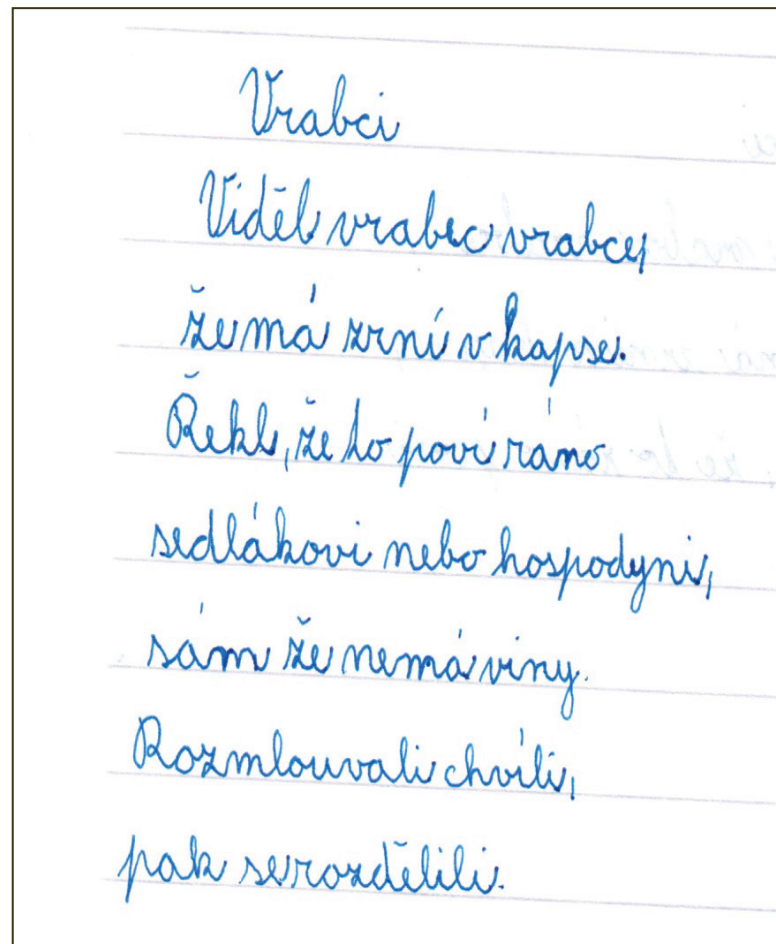 Vrabci
Viděl vrabec vrabce,
že má zrní v kapse.
Řekl, že to poví ráno
sedlákovi nebo hospodyni,
sám že nemá viny.
Rozmlouvali chvíli,
pak se rozdělili.